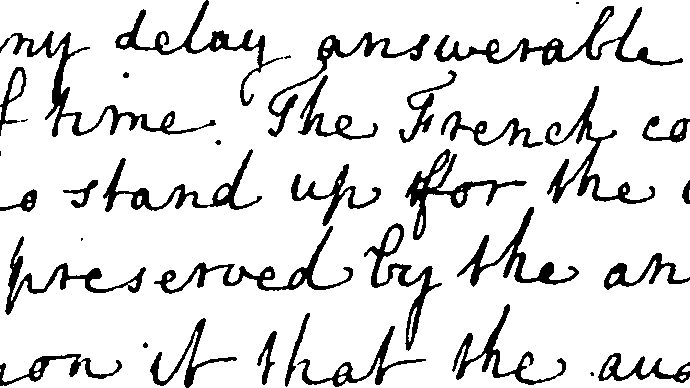 ny delay answerable
f time. The French co
o stand up for the
preserved by the an
on it that the aug